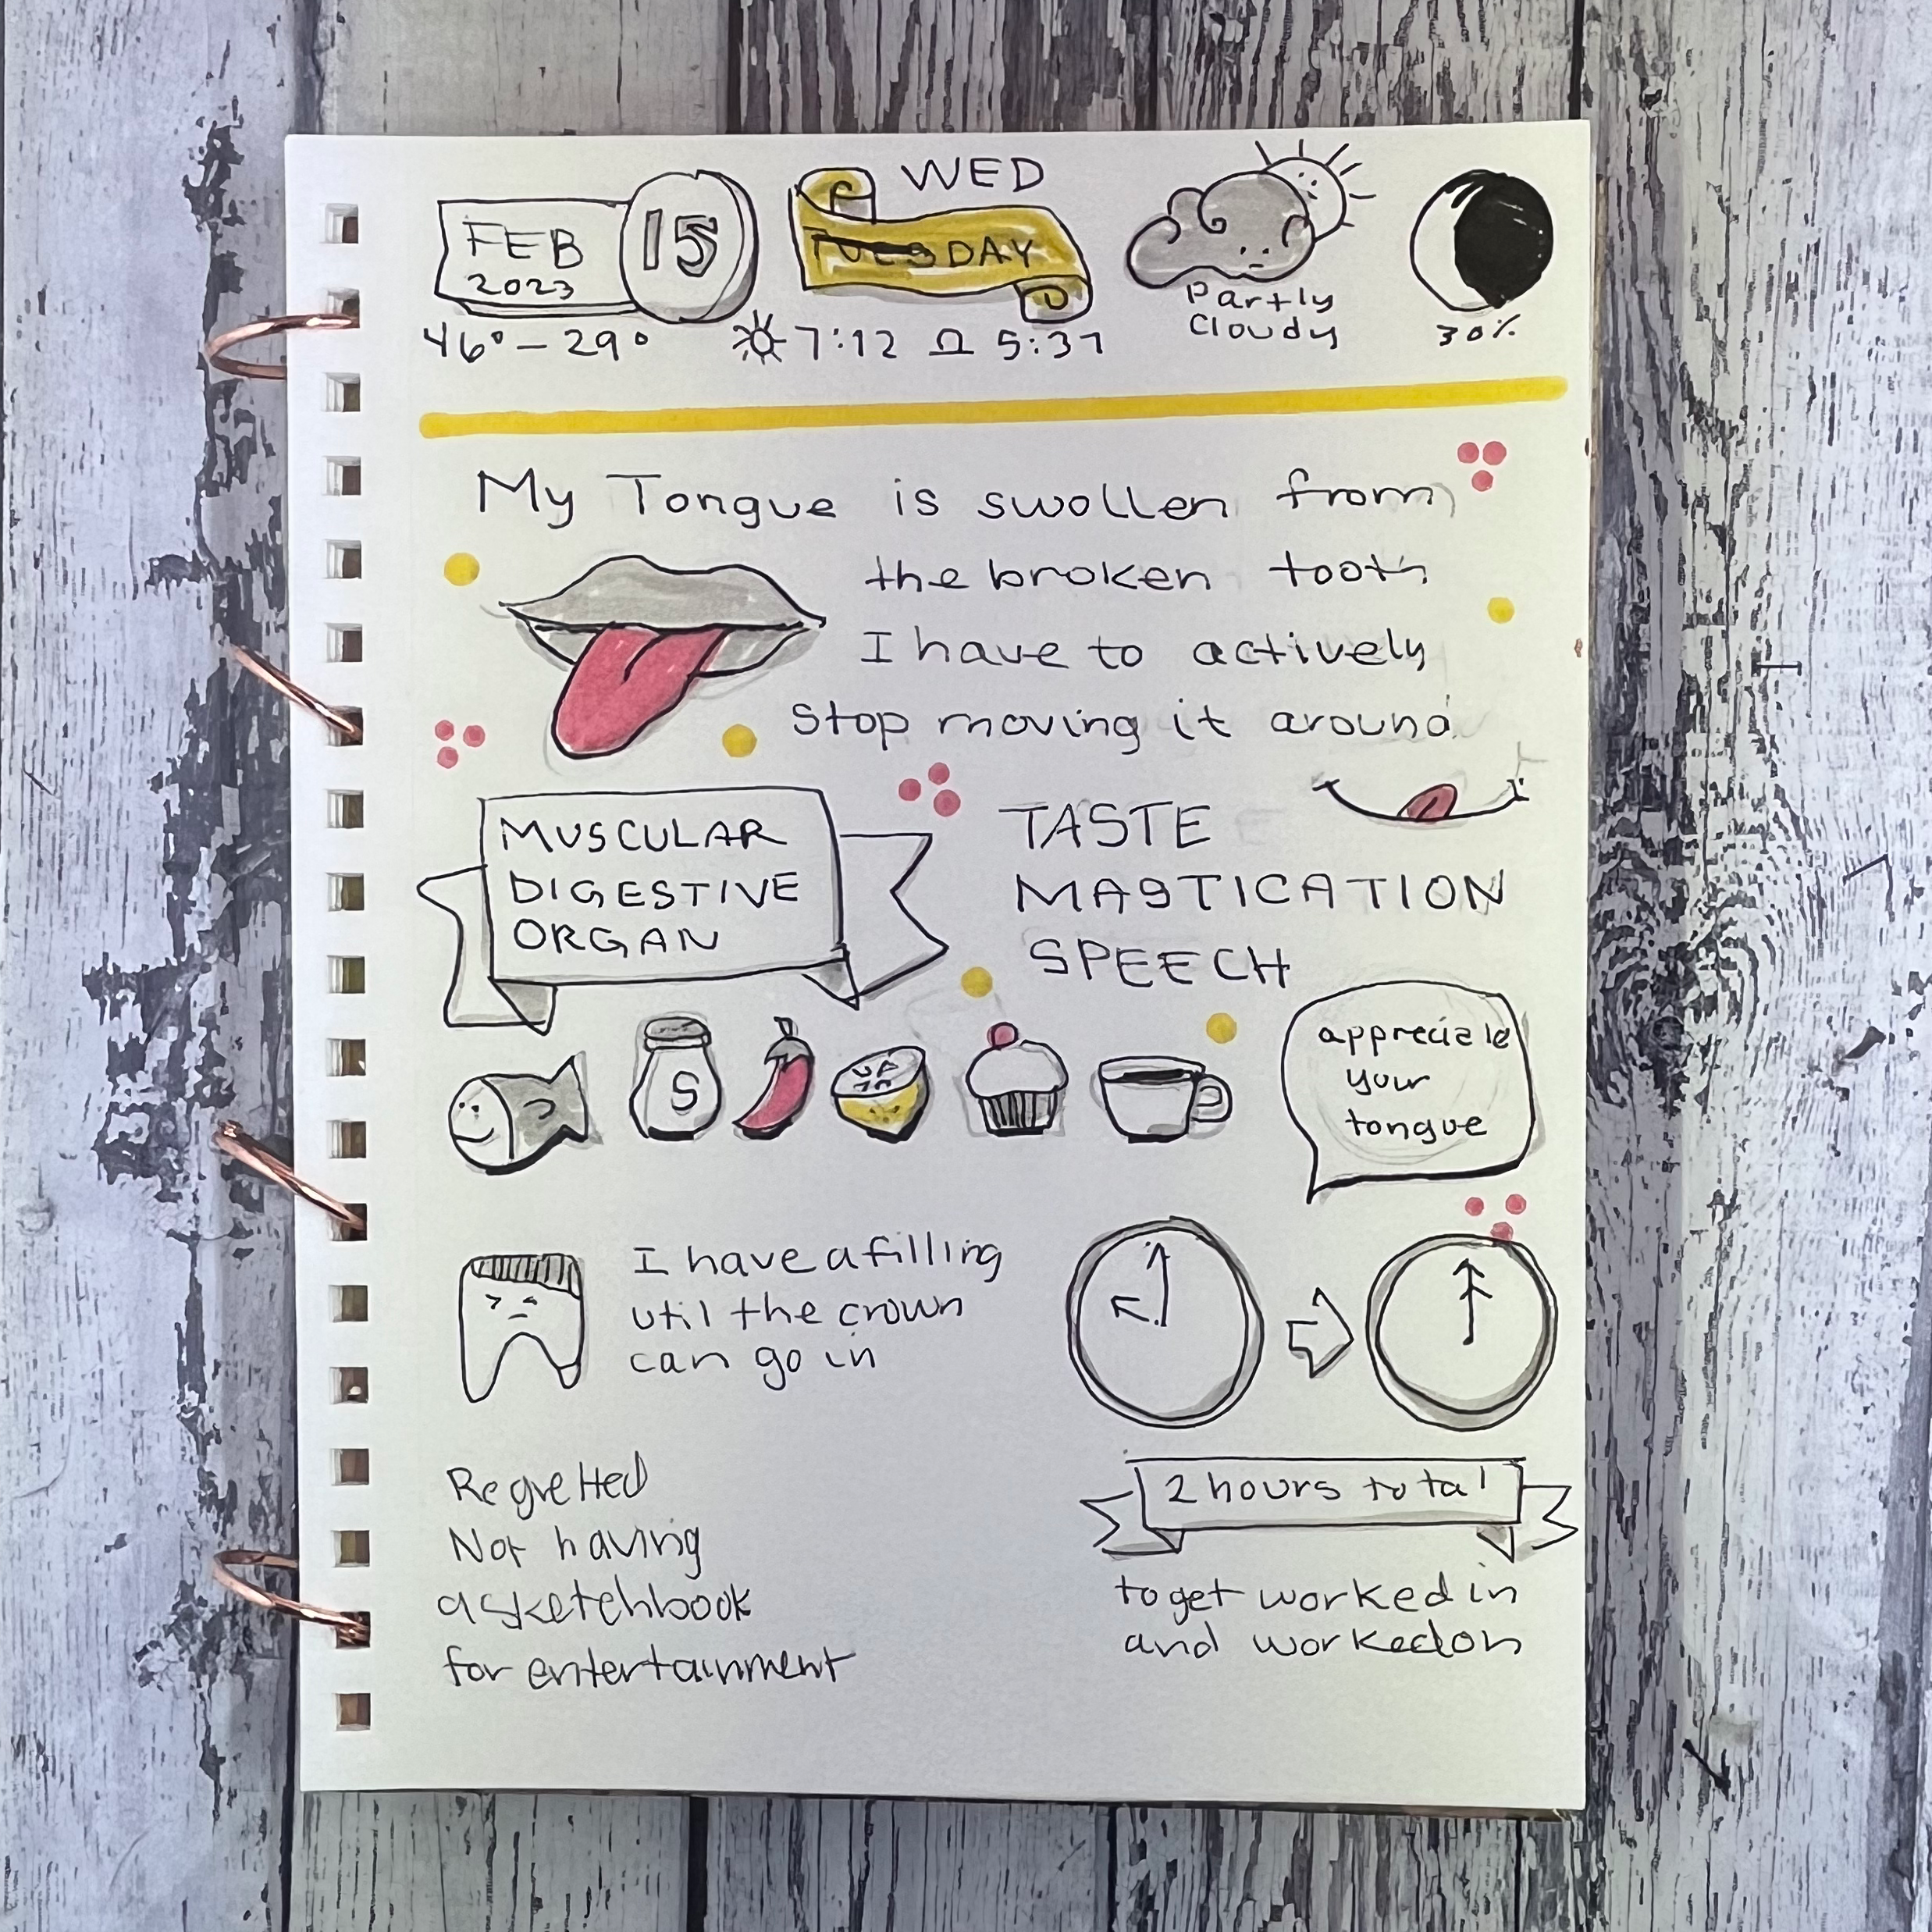 WED
FEB
2023
15
TUESDAY
Partly
Cloudy
30%
46° – 29°
7:12
5:37
My Tongue is swollen from
the broken tooth
I have to actively
stop moving it around
MUSCULAR
DIGESTIVE
ORGAN
TASTE
MASTICATION
SPEECH
S
appreciate
your
tongue
I have a filling
util the crown
can go in
Regretted
Not having
a sketchbook
for entertainment
2 hours total
to get worked in
and worked on